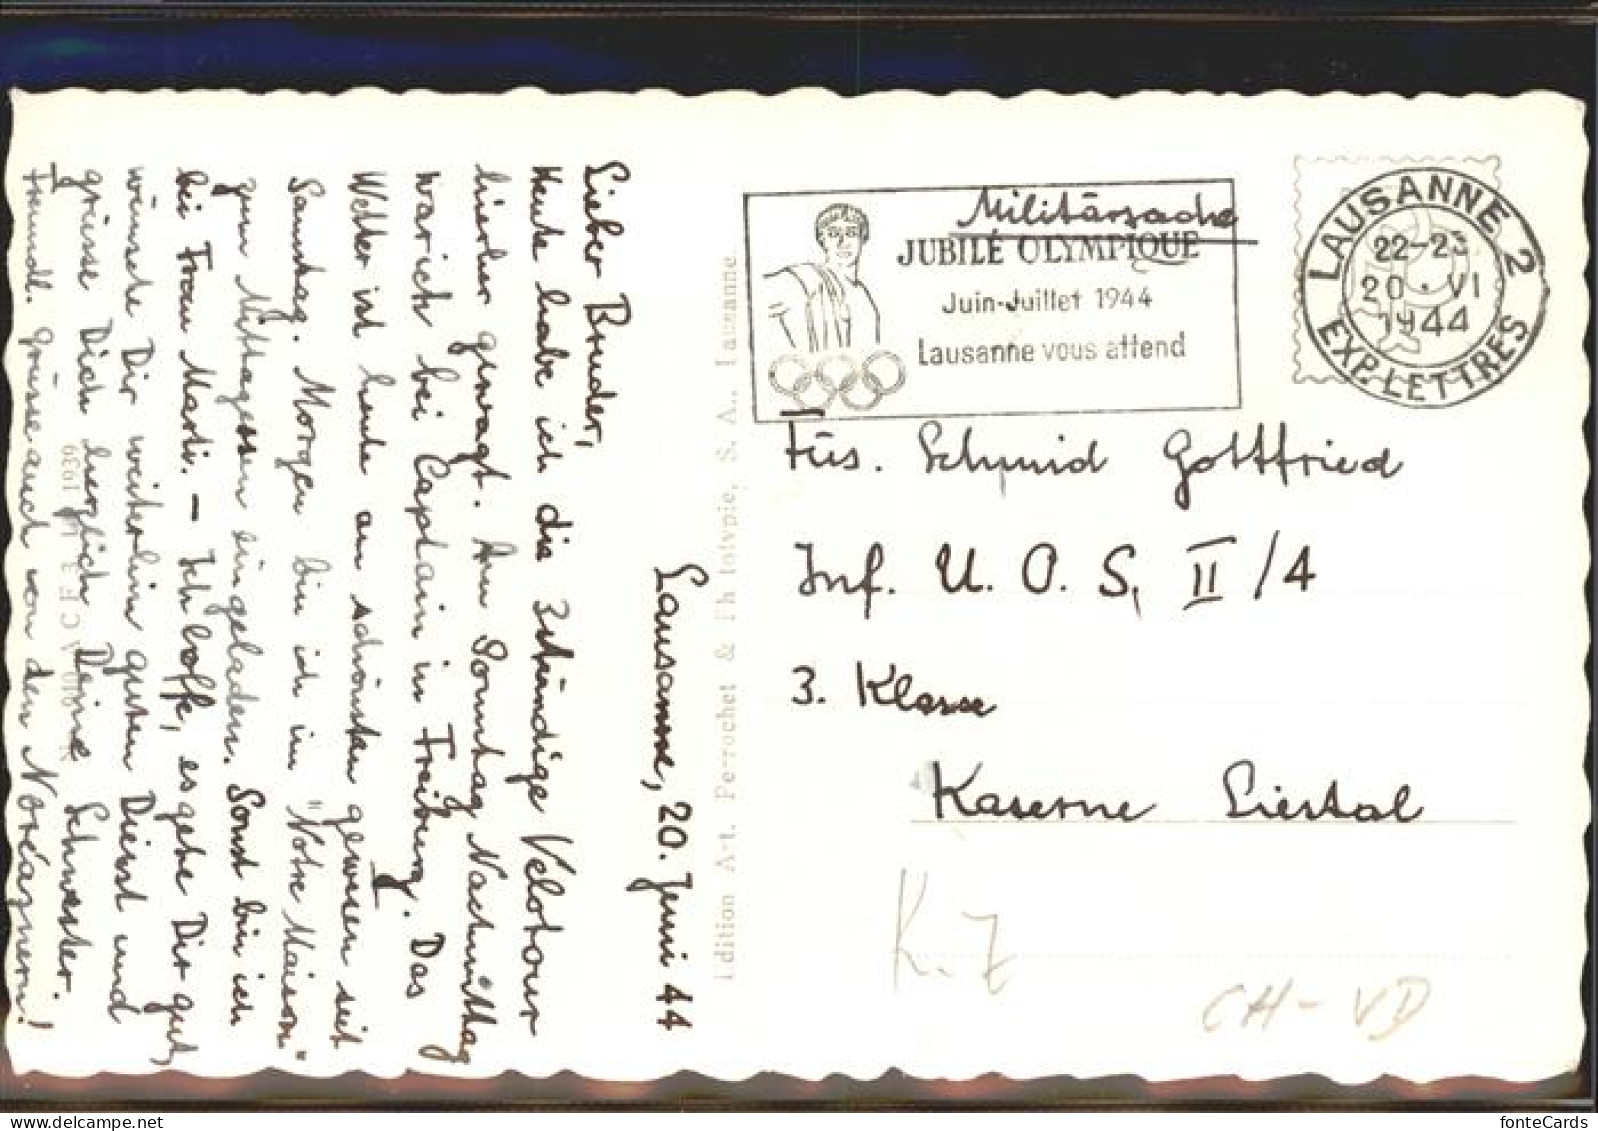 Lausanne, 20. Juni 44
Lieber Bruder,
Heute habe ich die 3stündige Velotour
hierher gewagt. Am Sonntag Nachmittag
war ich bei Captain in Freiburg. Das
Wetter ist heute am schönsten gewesen seit
Samstag. Morgen bin ich im "Notre Maison"
zum Mittagessen eingeladen. Sonst bin ich
bei Frau Marti. – Ich hoffe, es gehe Dir gut,
wünsche Dir weiterhin guten Dienst und
grüsse Dich herzlich Deine Schwester.
Freundl. Grüsse auch von den
Edition Art. Perrochet & Phototypie, S. A., Lausanne.
Militärsache
JUBILÉ OLYMPIQUE
Juin-Juillet 1944
Lausanne vous attend
LAUSANNE 2
22-23
20. VI
1944
EXP. LETTRES
Füs. Schmid Gottfried
Inf. U. O. S. II/4
3. Klasse
Kaserne Liestal
K. Z
CH - VD
fonteCards